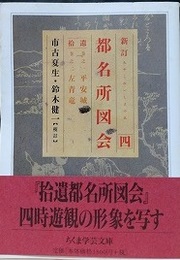 新訂
都名所図会 四
遺 平安城
拾 左青竜
市古夏生・鈴木健一【校訂】
『拾遺都名所図会』
四時遊観の形象を写す
ちくま学芸文庫